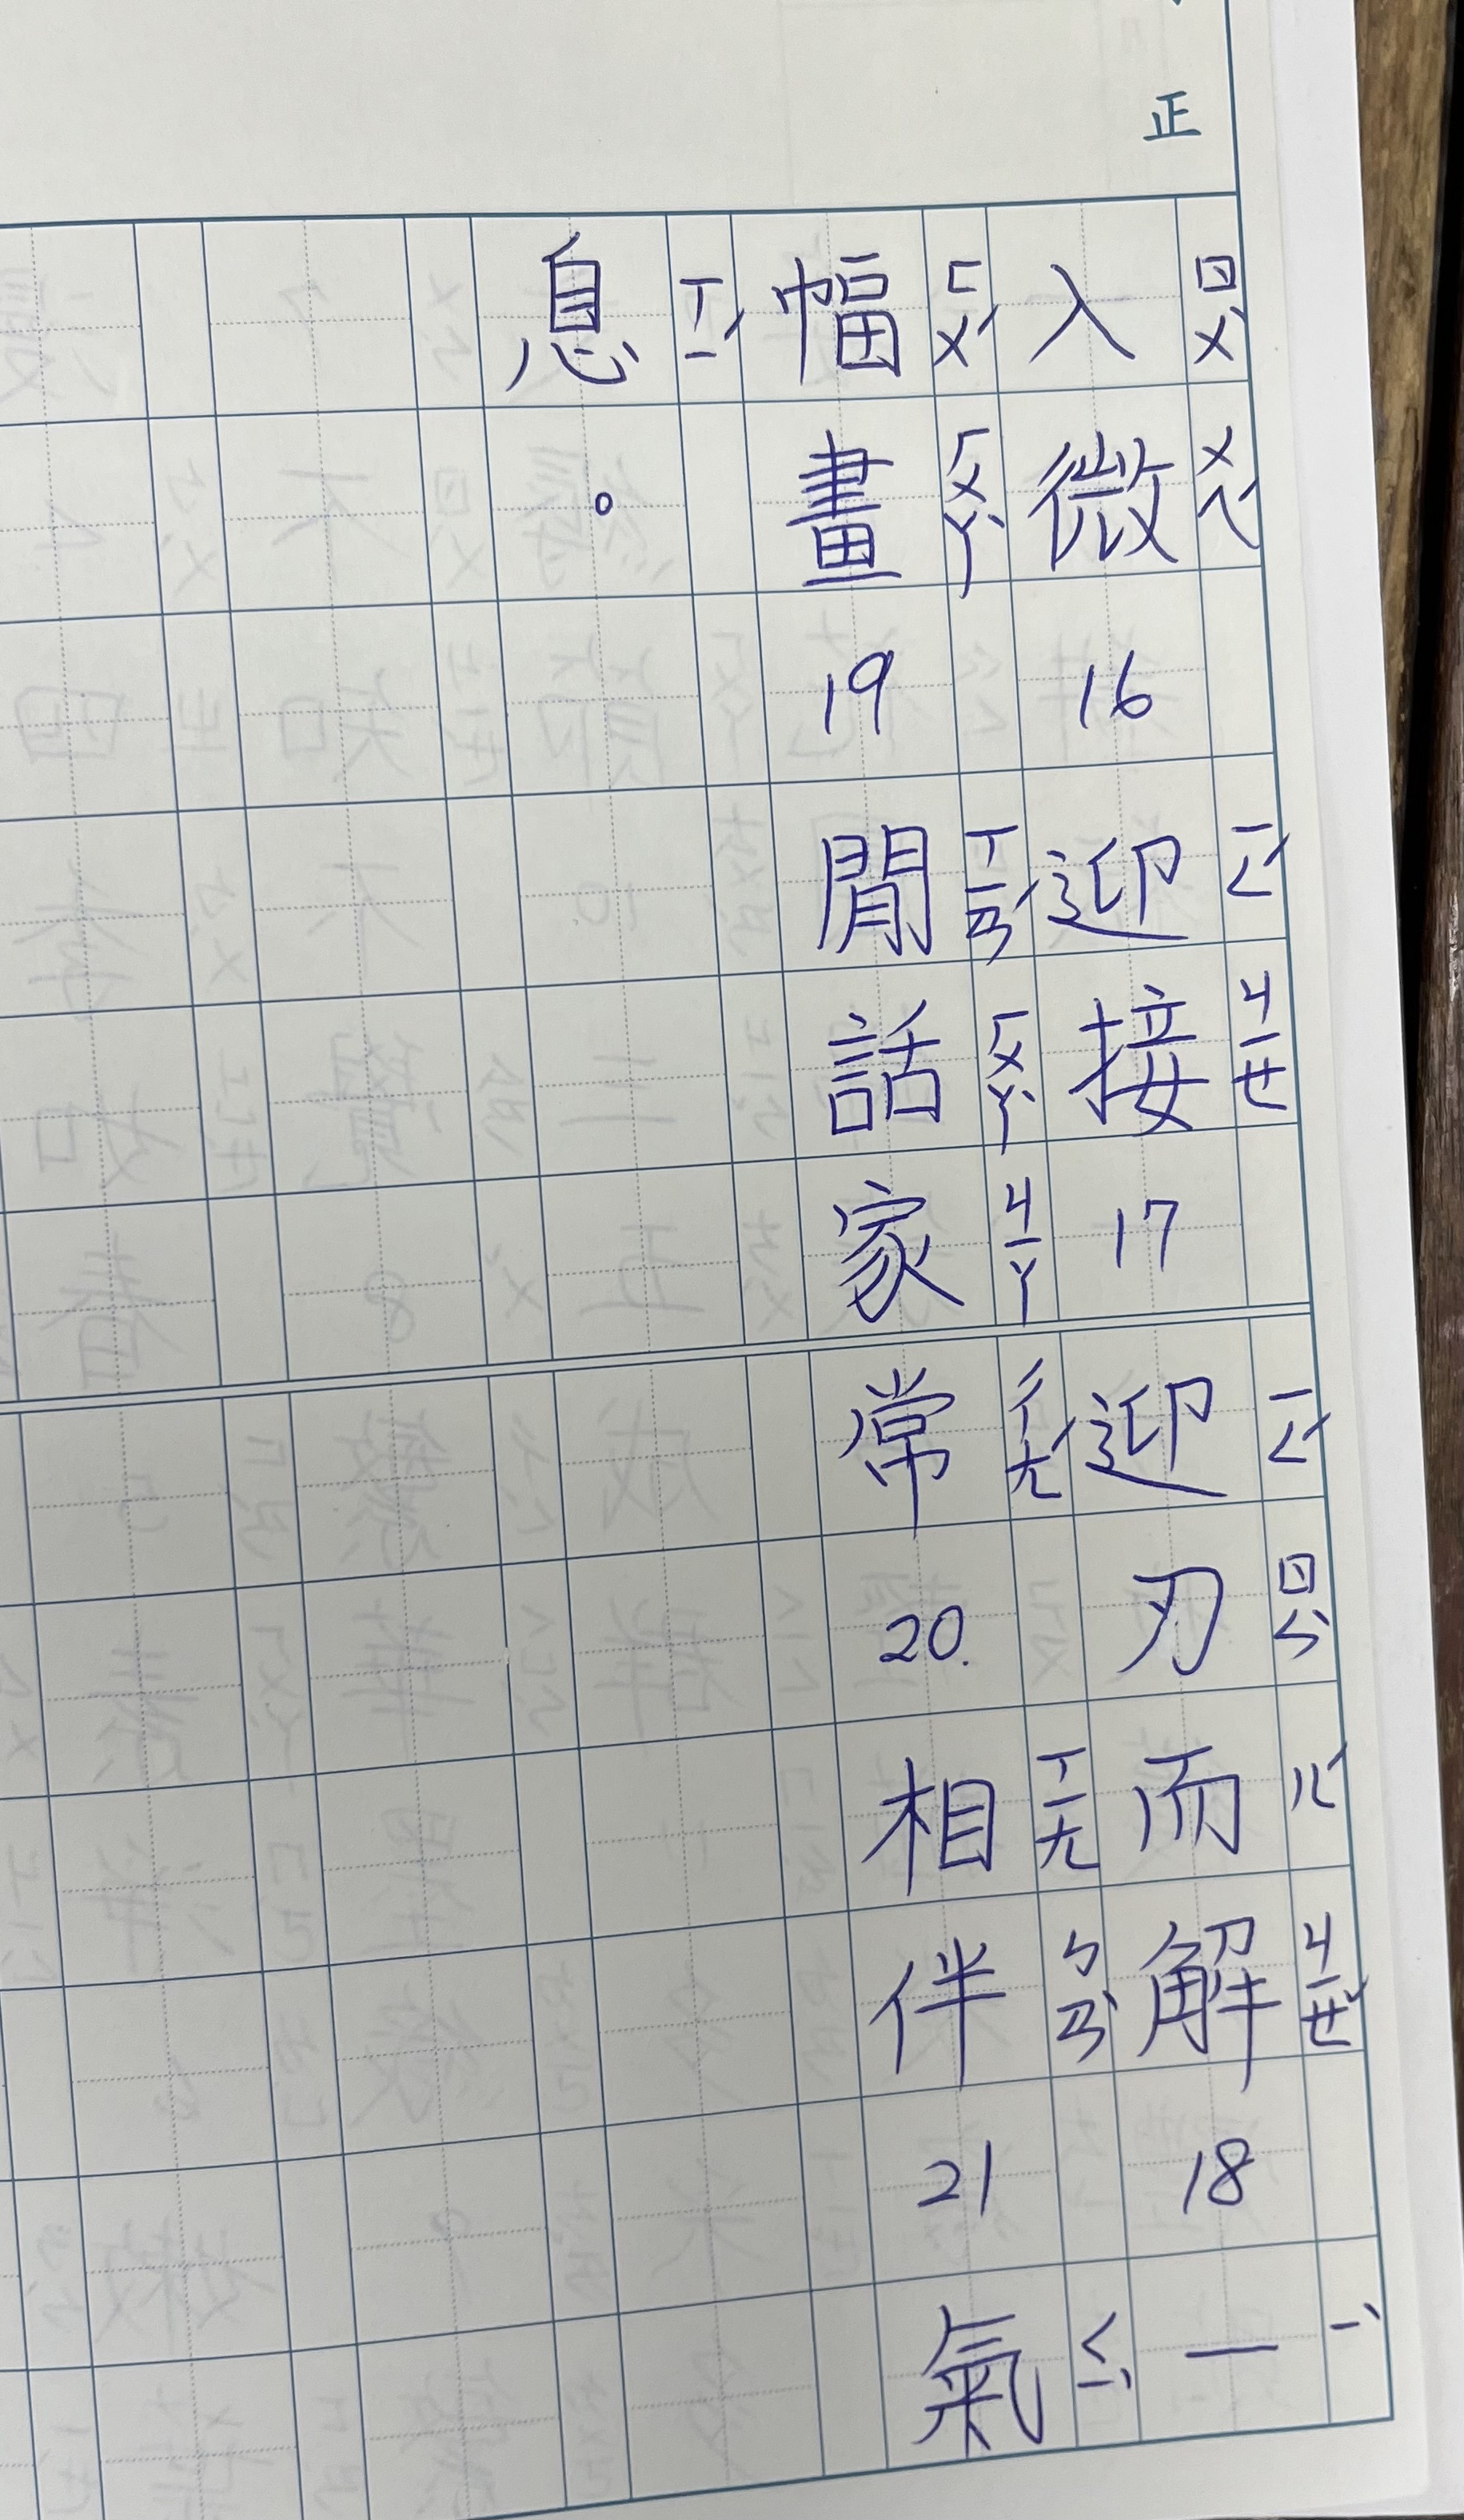 正
入ㄖㄨˋ微ㄨㄟˊ16迎ㄧㄥˊ接ㄐㄧㄝ17迎ㄧㄥˊ刃ㄖㄣˋ而ㄦˊ解ㄐㄧㄝˇ18一ㄧˋ
幅ㄈㄨˊ畫ㄏㄨㄚˋ19閒ㄒㄧㄢˊ話ㄏㄨㄚˋ家ㄐㄧㄚ常ㄔㄤˊ20.相ㄒㄧㄤ伴ㄅㄢˋ21氣ㄑㄧˋ
息ㄒㄧˊ。